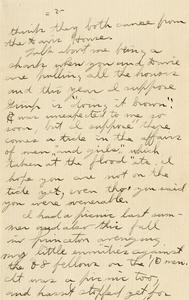 -2-
think they both came from
the Home House.
Talk about me being a
shark when you and
are pulling all the honors
and this year I suppose
"doing it brown"
& was unexpected to me so
soon, but I suppose there
comes a tide in the affairs
of men "and girls" which
taken at the "flood" etc. I
hope you are not on the
tide yet, even tho you said
you were venerable.
I had a picnic last sum-
mer and also this fall
in Princeton avenging
my little enmities against
the 08 fellows or the 10 men.
It was a picnic too,
and hasn't stopped yet for